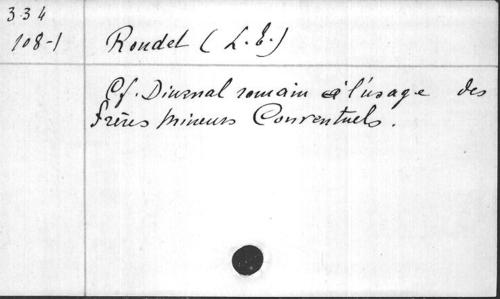 334
108-1 Rondet (L. E.)
Cf. Diurnal romain à l'usage des
Frères Mineurs Conventuels.